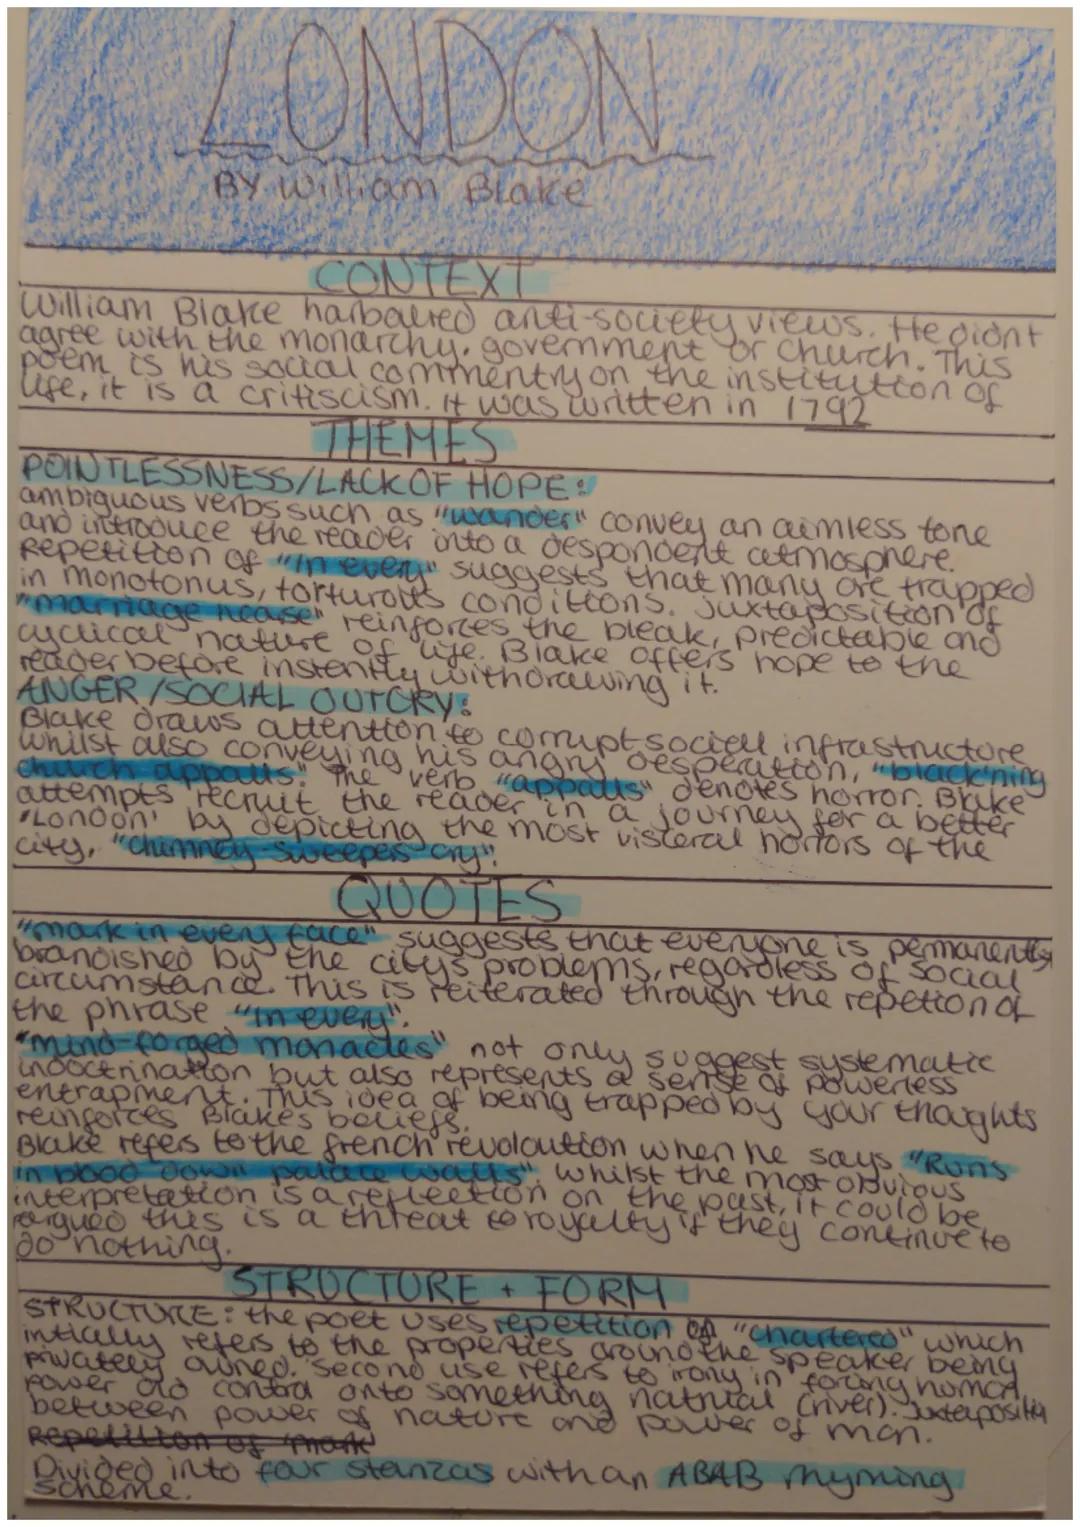 LONDON
BY William Blake
CONTEXT
William Blake harboured anti-society views. He didnt
agree with the monarchy, government or church. This
poem, is his social commentry on the institution of
life, it is a critiscism. It was written in 1792
THEMES
POINTLESSNESS/LACK OF HOPE:
ambiguous verbs such as "wander" convey an aimless tone
and introduce the reader into a despondent atmosphere.
Repetition of "In every" suggests that many are trapped
in monotonus, torturous conditions. Juxtaposition of
"marriage hearse" reinforces the bleak, predictable and
cyclical nature of life. Blake offers hope to the
reader before instantly withdrawing it.
ANGER/SOCIAL OUTCRY:
Blake draws attention to corrupt social infrastructure
whilst also conveying his angry desperation, "black'ning
church appalls". The verb "appalls" denotes horror. Blake
attempts recruit the reader in a journey for a better
'London' by depicting the most visceral horrors of the
city, "chimney-sweepers cry".
QUOTES
"mark in every face" suggests that everyone is permanently
brandished by the city's problems, regardless of social
circumstance. This is reiterated through the repetion of
the phrase "in every".
"mind-forged manacles" not only suggest systematic
indoctrination but also represents a sense of powerless
entrapment. This idea of being trapped by your thoughts
reinforces Blakes beliefs.
Blake refers to the french revoloution when he says "Runs
in blood down palace walls". Whilst the most obvious
interpretation is a reflection on the past, it could be
argued this is a threat to royalty if they continue to
do nothing.
STRUCTURE + FORM
STRUCTURE: the poet uses repetition of "chartered" which
intially refers to the properties around the speaker being
privately owned. Second use refers to irony in forcing human
power and control onto something natural (river). Juxtaposition
between power of nature and power of man.
Repetition of 'mark'
Divided into four stanzas with an ABAB rhyming
scheme.